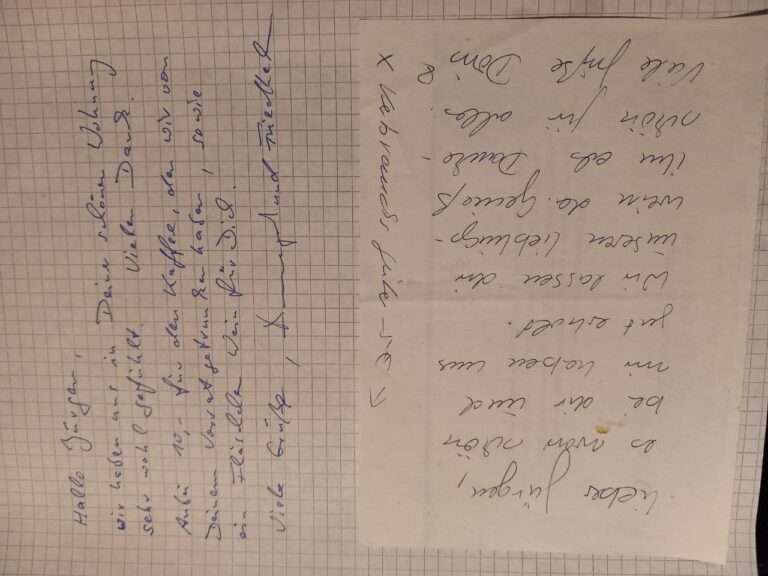 Hallo Jürgen,
wir haben uns in Deiner schönen Wohnung
sehr wohl gefühlt. Vielen Dank.
Anbei 10,- für den Kaffee, den wir von
Deinem Vorrat getrunken haben, sowie
ein Fläschchen Wein für Dich.
Viele Grüße, und
Lieber Jürgen,
es war schön
bei dir und
wir haben uns
gut erholt.
Wir lassen dir
unseren Lieblings-
wein da. Genieß
ihn als Danke-
schön für alles.
Viele Grüße Doris
&
x 5€ →